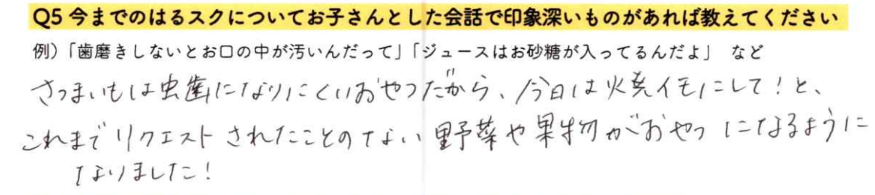 Q5 今までのはるスクについてお子さんとした会話で印象深いものがあれば教えてください
例）「歯磨きしないとお口の中が汚いんだって」「ジュースはお砂糖が入ってるんだよ」 など
さつまいもは虫歯になりにくいおやつだから、今日は焼イモにして！と、
これまでリクエストされたことのない野菜や果物がおやつになるように
なりました！